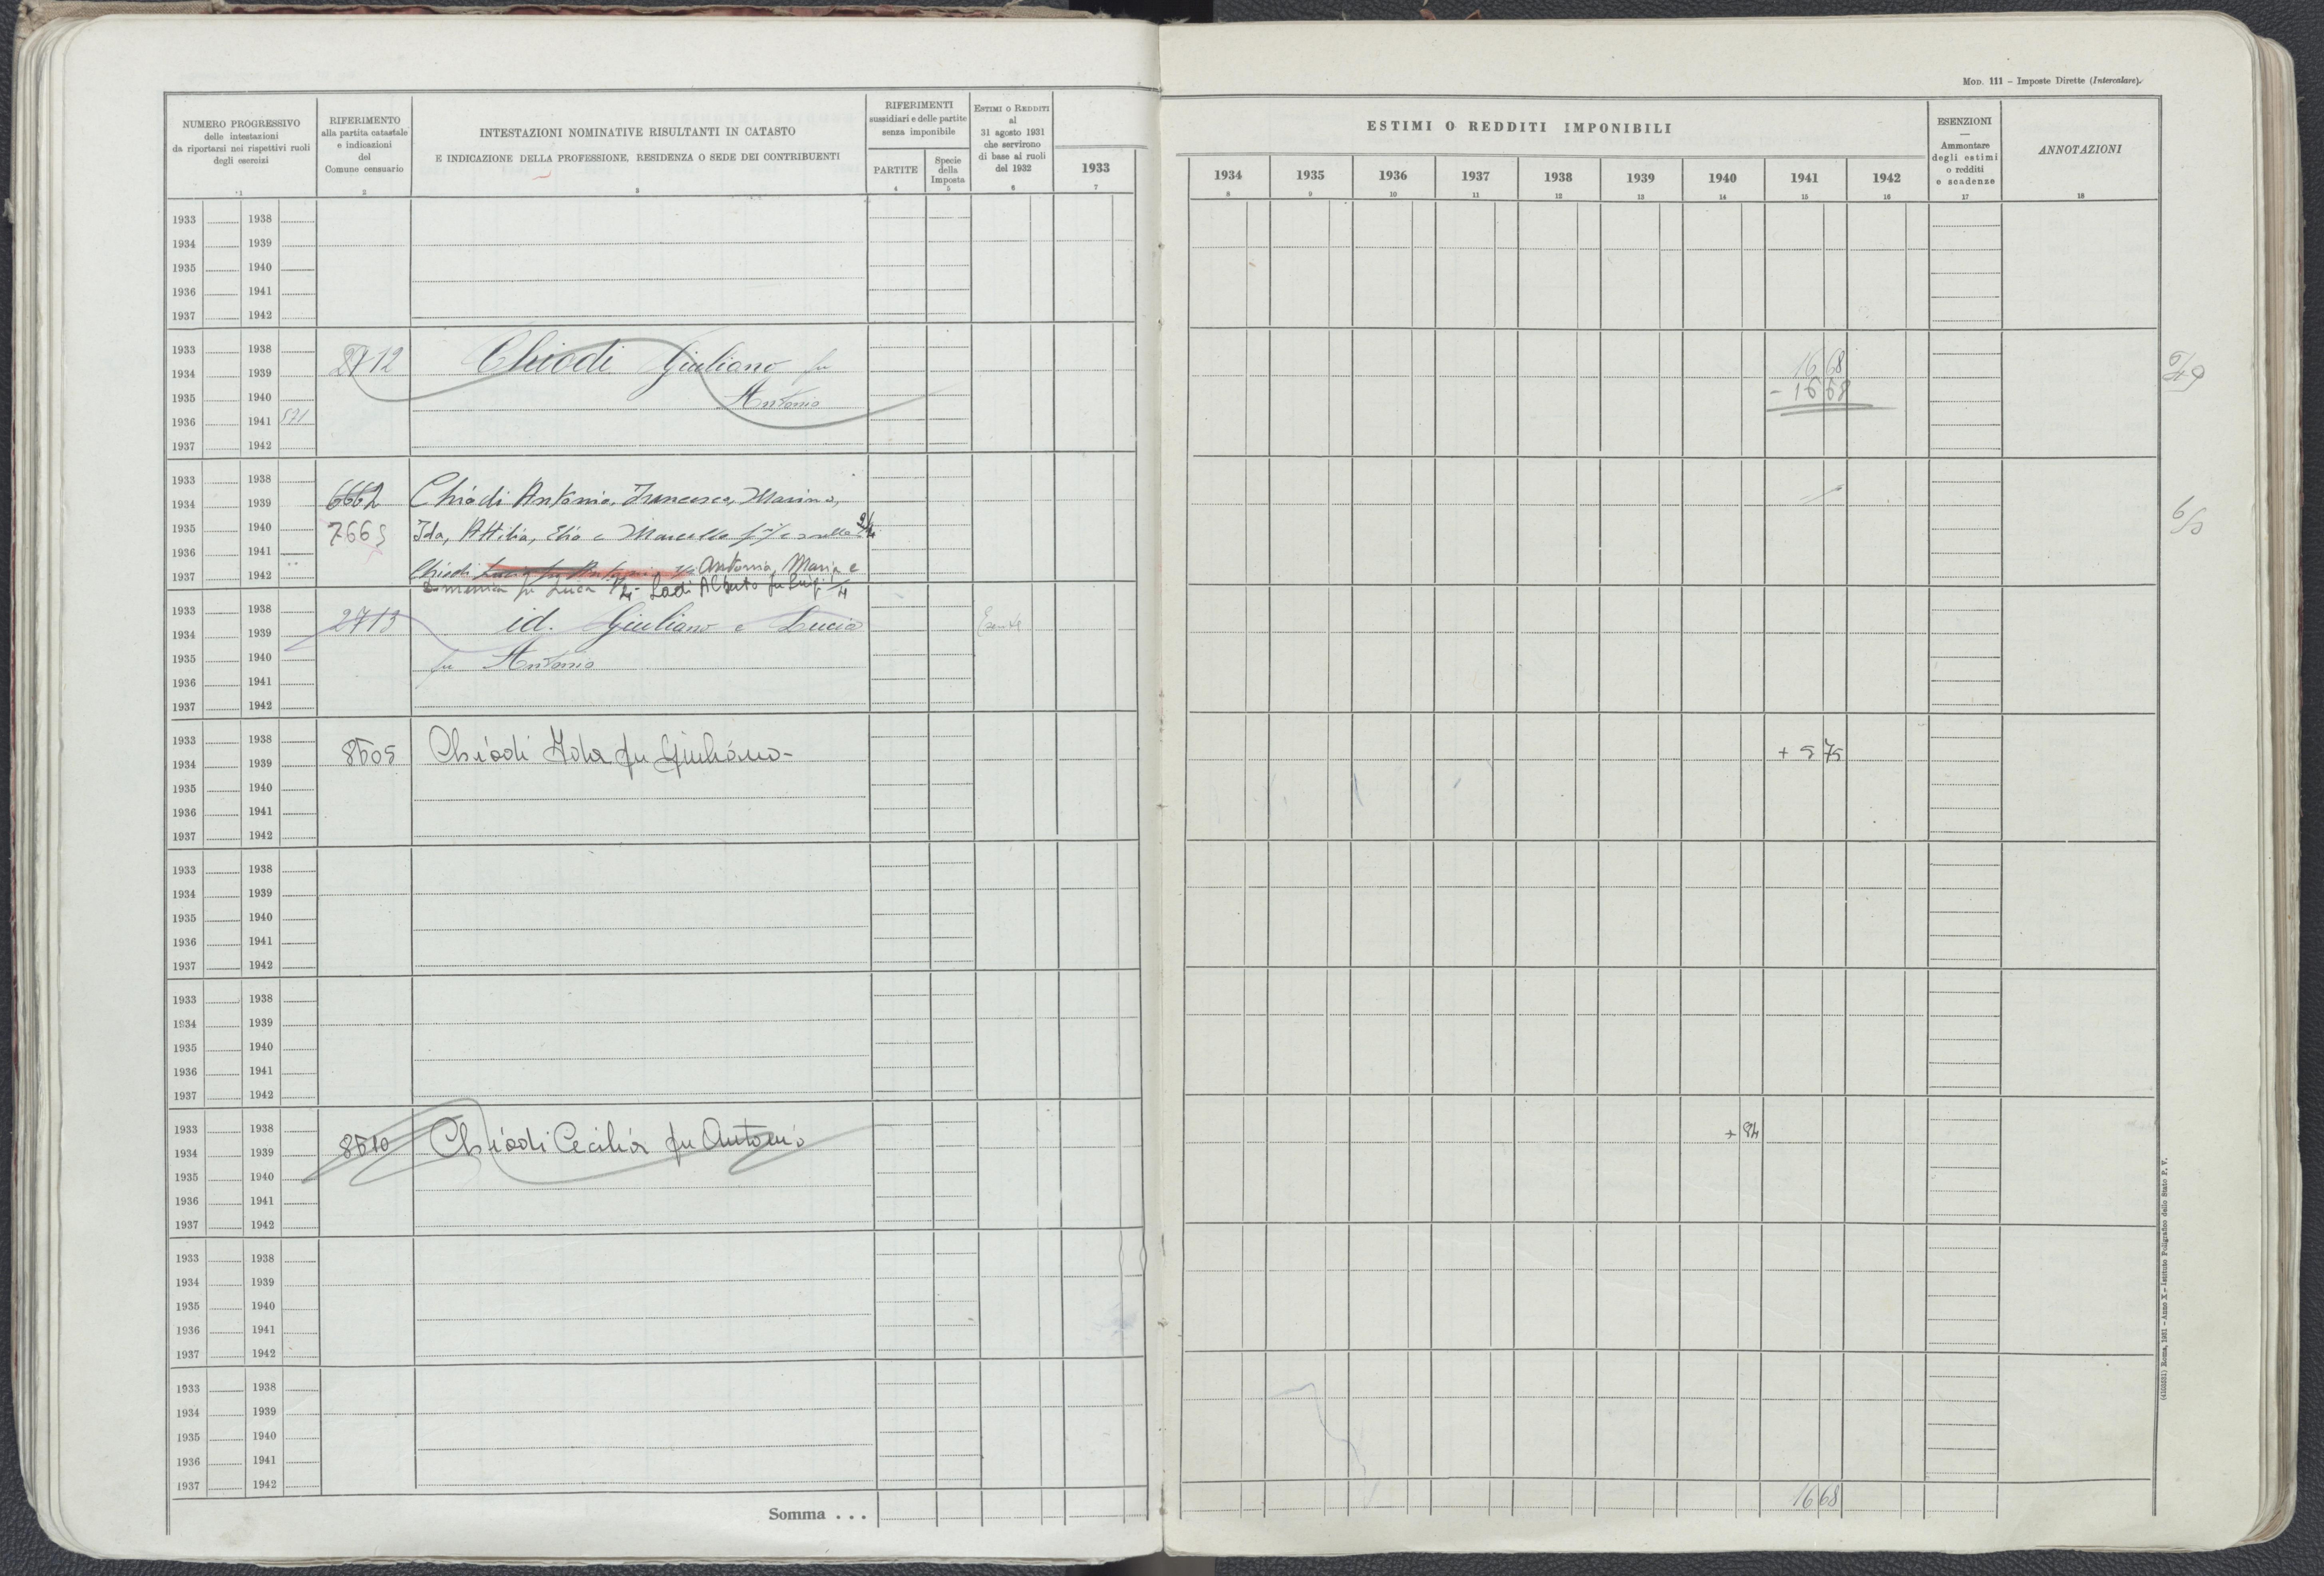 Mod. 111 – Imposte Dirette (Intercalare).
NUMERO PROGRESSIVO
delle intestazioni
da riportarsi nei rispettivi ruoli
degli esercizi
1
RIFERIMENTO
alla partita catastale
e indicazioni
del
Comune censuario
2
INTESTAZIONI NOMINATIVE RISULTANTI IN CATASTO
E INDICAZIONE DELLA PROFESSIONE, RESIDENZA O SEDE DEI CONTRIBUENTI
3
RIFERIMENTI
sussidiari e delle partite
senza imponibile
PARTITE
4
Specie
della
Imposta
5
Estimi o Redditi
al
31 agosto 1931
che servirono
di base ai ruoli
del 1932
6
1933
7
ESTIMI O REDDITI IMPONIBILI
1934 1935 1936 1937 1938 1939 1940 1941 1942
8 9 10 11 12 13 14 15 16
ESENZIONI
—
Ammontare
degli estimi
o redditi
e scadenze
17
ANNOTAZIONI
18
1933 1938
1934 1939
1935 1940
1936 1941
1937 1942
1933 1938
1934 1939 2712 Chiodi Giuliano fu 1668
1935 1940 Antonio - 1668
1936 1941 521
1937 1942
1933 1938
1934 1939 6662 Chiodi Antonio, Francesca, Marino,
1935 1940 7665 Ida, Attilia, Elio e Marcella
1936 1941
1937 1942 Chiodi Antonia, Maria e
Domenica fu Luca 1/4 - Ladi Alberto fu Luigi 1/4
1933 1938
1934 1939 2713 id. Giuliano e Lucia Esente
1935 1940 fu Antonio
1936 1941
1937 1942
1933 1938
1934 1939 8505 Chiodi Ida fu Giuliano - + 575
1935 1940
1936 1941
1937 1942
1933 1938
1934 1939
1935 1940
1936 1941
1937 1942
1933 1938
1934 1939
1935 1940
1936 1941
1937 1942
1933 1938
1934 1939 8510 Chiodi Cecilia fu Antonio + 84
1935 1940
1936 1941
1937 1942
1933 1938
1934 1939
1935 1940
1936 1941
1937 1942
1933 1938
1934 1939
1935 1940
1936 1941
1937 1942
Somma . . . 1668
(4103531) Roma, 1931 – Anno X – Istituto Poligrafico dello Stato P. V.